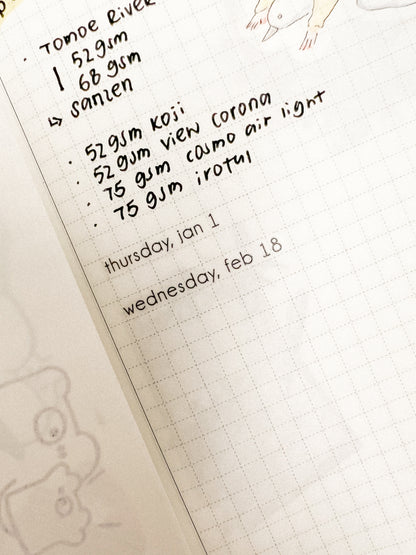 • TOMOE RIVER
| 52gsm
68 gsm
↳ sanzen
• 52gsm koji
• 52 gsm view corona
• 75 gsm cosmo air light
• 75 gsm iroful
thursday, jan 1
wednesday, feb 18